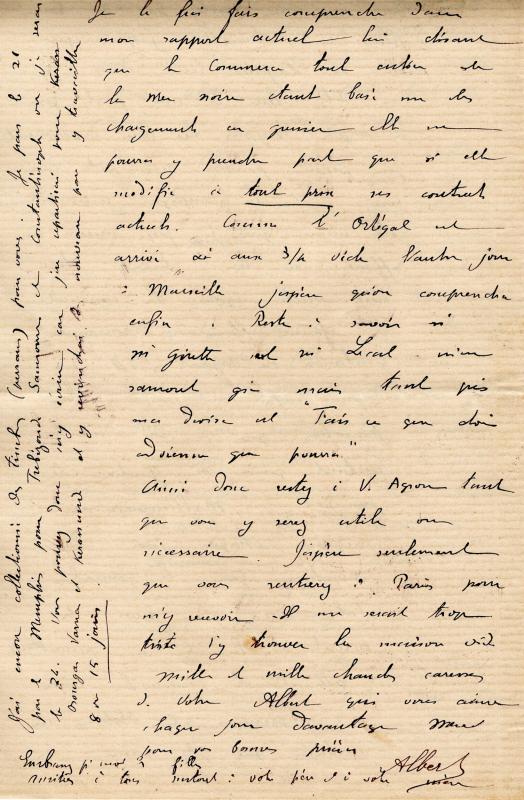 Je le fais comprendre dans
mon rapport actuel lui disant
que le Commerce tout entier de
la Mer noire étant basé sur les
chargements en grenier elle ne
pourra y prendre part que si elle
modifie à tout prix ses contrats
actuels. Comme l'Ortégal est
arrivé aux 3/4 vide l'autre jour
à Marseille j'espère qu'on comprendra
enfin. Reste à savoir si
ni ni
mais tant pis
ma devise est "Fais ce que dois
advienne que pourra"
Ainsi donc restez à V. Agron tant
que vous y serez utile ou
nécessaire. J'espère seulement
que vous rentrerez à Paris pour
m'y recevoir. Il me serait trop
triste d'y trouver la maison vide
Mille et mille chaudes caresses
de votre Albert qui vous aime
chaque jour davantage
pour vos bonnes prières
Embrassez pr moi filles
amitiés à tous surtout à votre père et à votre mère
Albert
J'ai encore collectionné des timbres (persans) pour vous. Je pars le 21
par le Memphis pour Trébizonde Samsoun et Constantinople où je serai
le 24. Vous pouvez donc m'y écrire car je
Varna et Kerasunde et y pour y travailler
8 ou 15 jours.